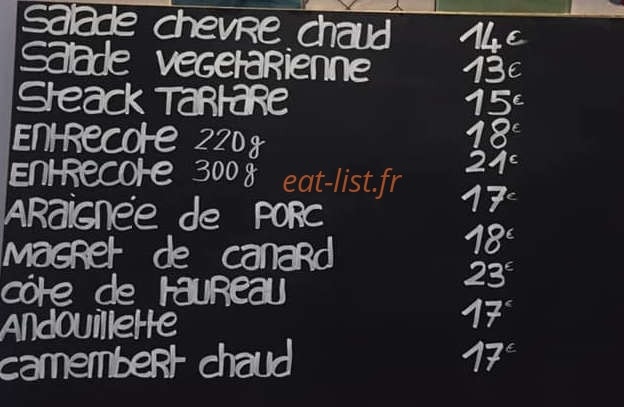 Salade chevre chaud 14€
Salade vegetarienne 13€
Steack Tartare 15€
Entrecote 220g 18€
Entrecote 300g 21€
eat-list.fr
Araignée de porc 17€
Magret de canard 18€
côte de taureau 23€
Andouillette 17€
camembert chaud 17€